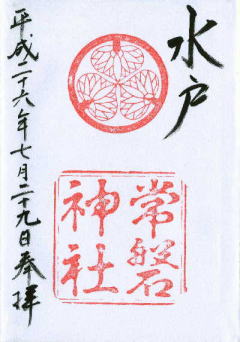 水戸
常磐
神社
平成二十六年七月二十九日奉拝